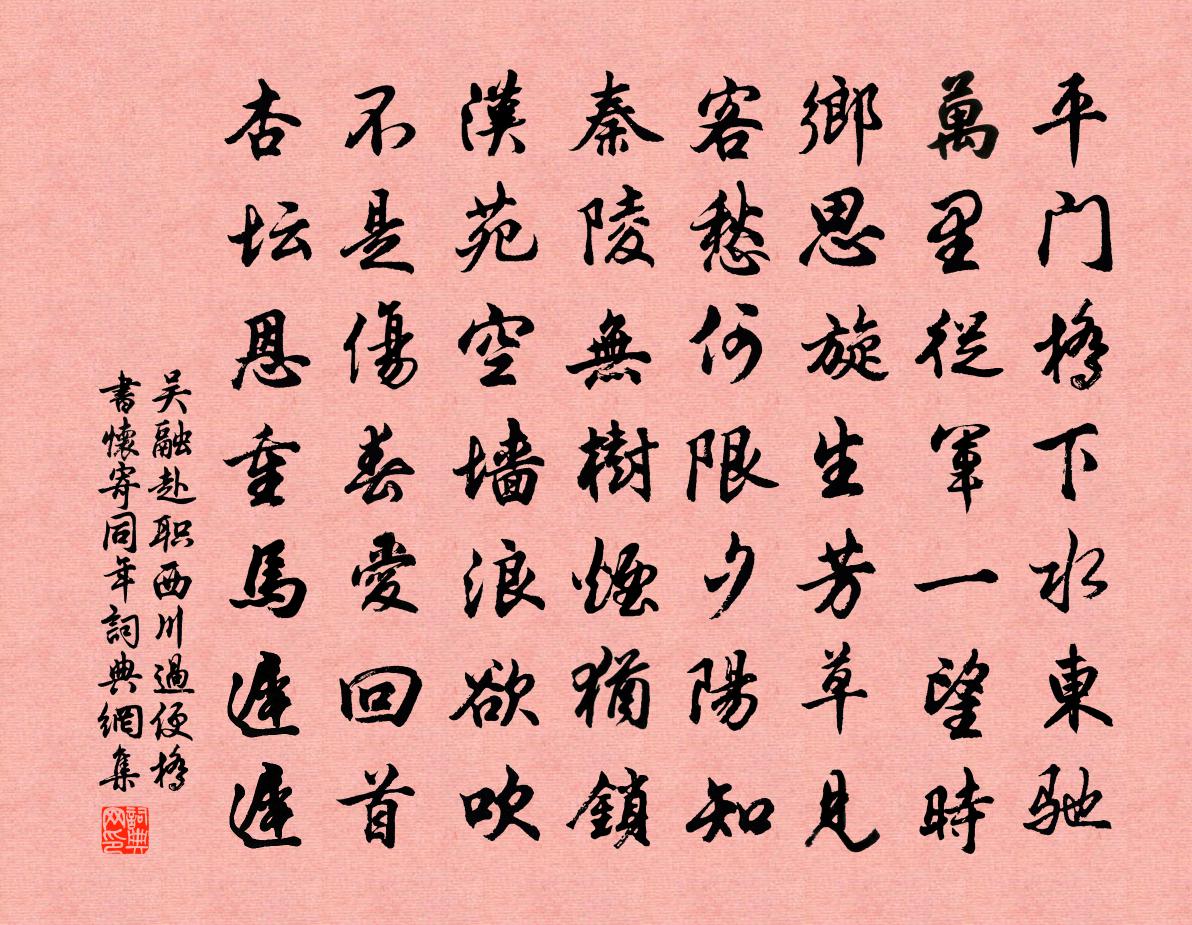 平门橋下水東馳
萬里從軍一望時
鄉思旋生芳草見
客愁何限夕陽知
秦陵無樹煙猶鎖
漢苑空墻浪欲吹
不是傷春愛回首
杏坛恩重馬遲遲
吴融赴职西川過便橋
書懷寄同年詞典網集
詞典
网印